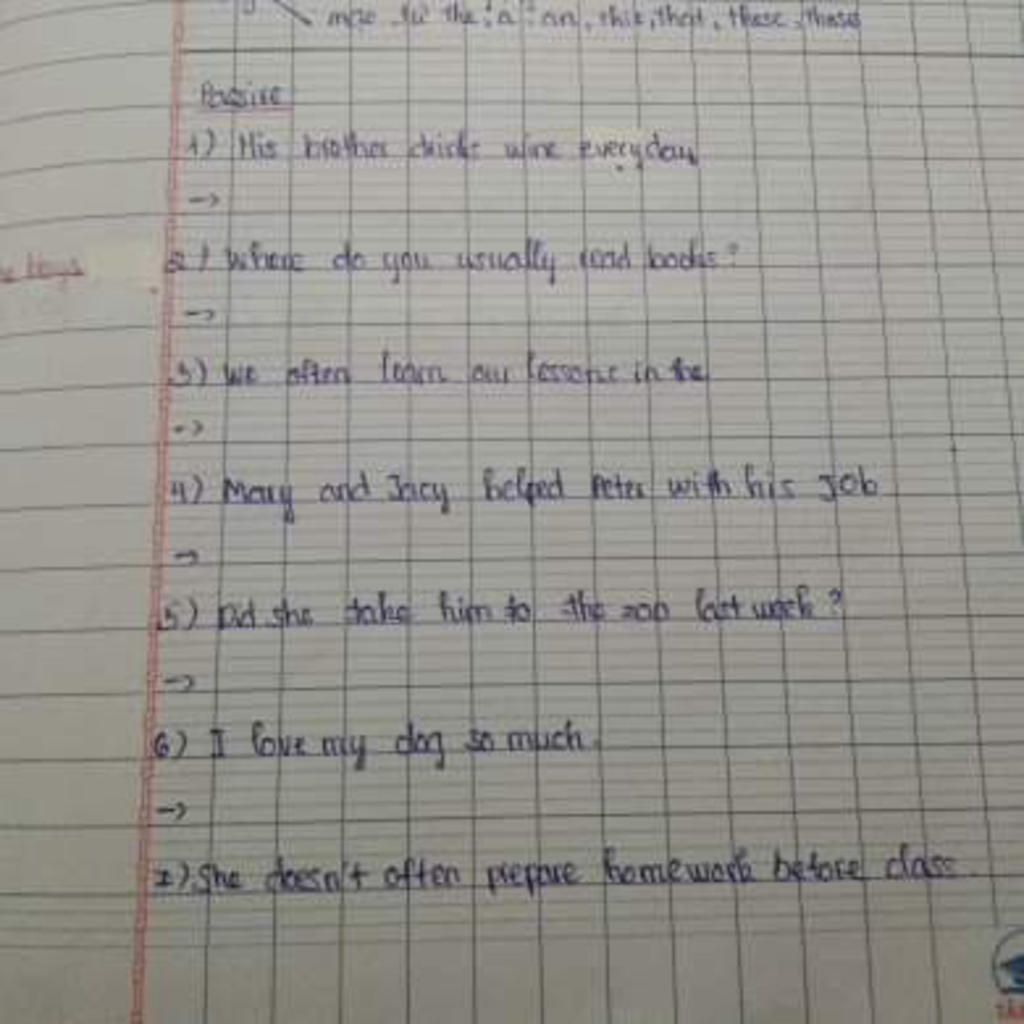 to the, a, an, this, that, these, those
Passive
1) His brother drinks wine everyday
->
2) Where do you usually read books?
->
3) We often learn our lessons in the
->
4) Mary and Jacy helped Peter with his job
->
5) Did she take him to the zoo last week?
->
6) I love my dog so much.
->
7) She doesn't often prepare homework before class.